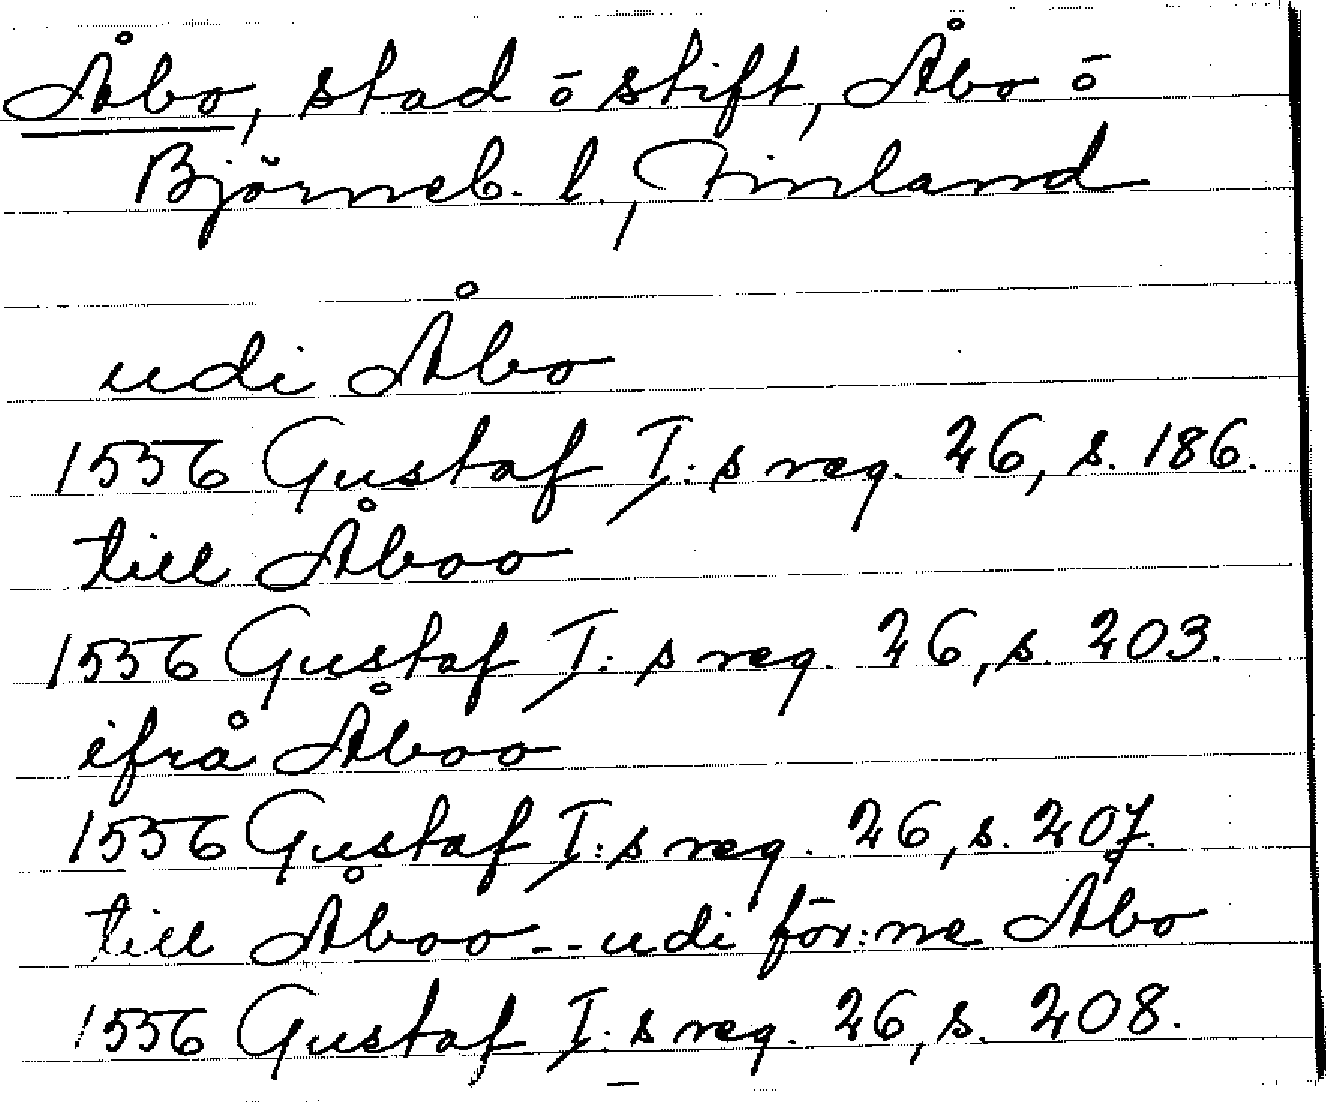 Åbo, stad ō stift, Åbo ō
Björneb. l., Finland
udi Åbo
1556 Gustaf I:s reg. 26, s. 186.
till Åboo
1556 Gustaf I:s reg. 26, s. 203.
ifrå Åboo
1556 Gustaf I:s reg. 26, s. 207.
till Åboo -- udi för:ne Åbo
1556 Gustaf I:s reg. 26, s. 208.